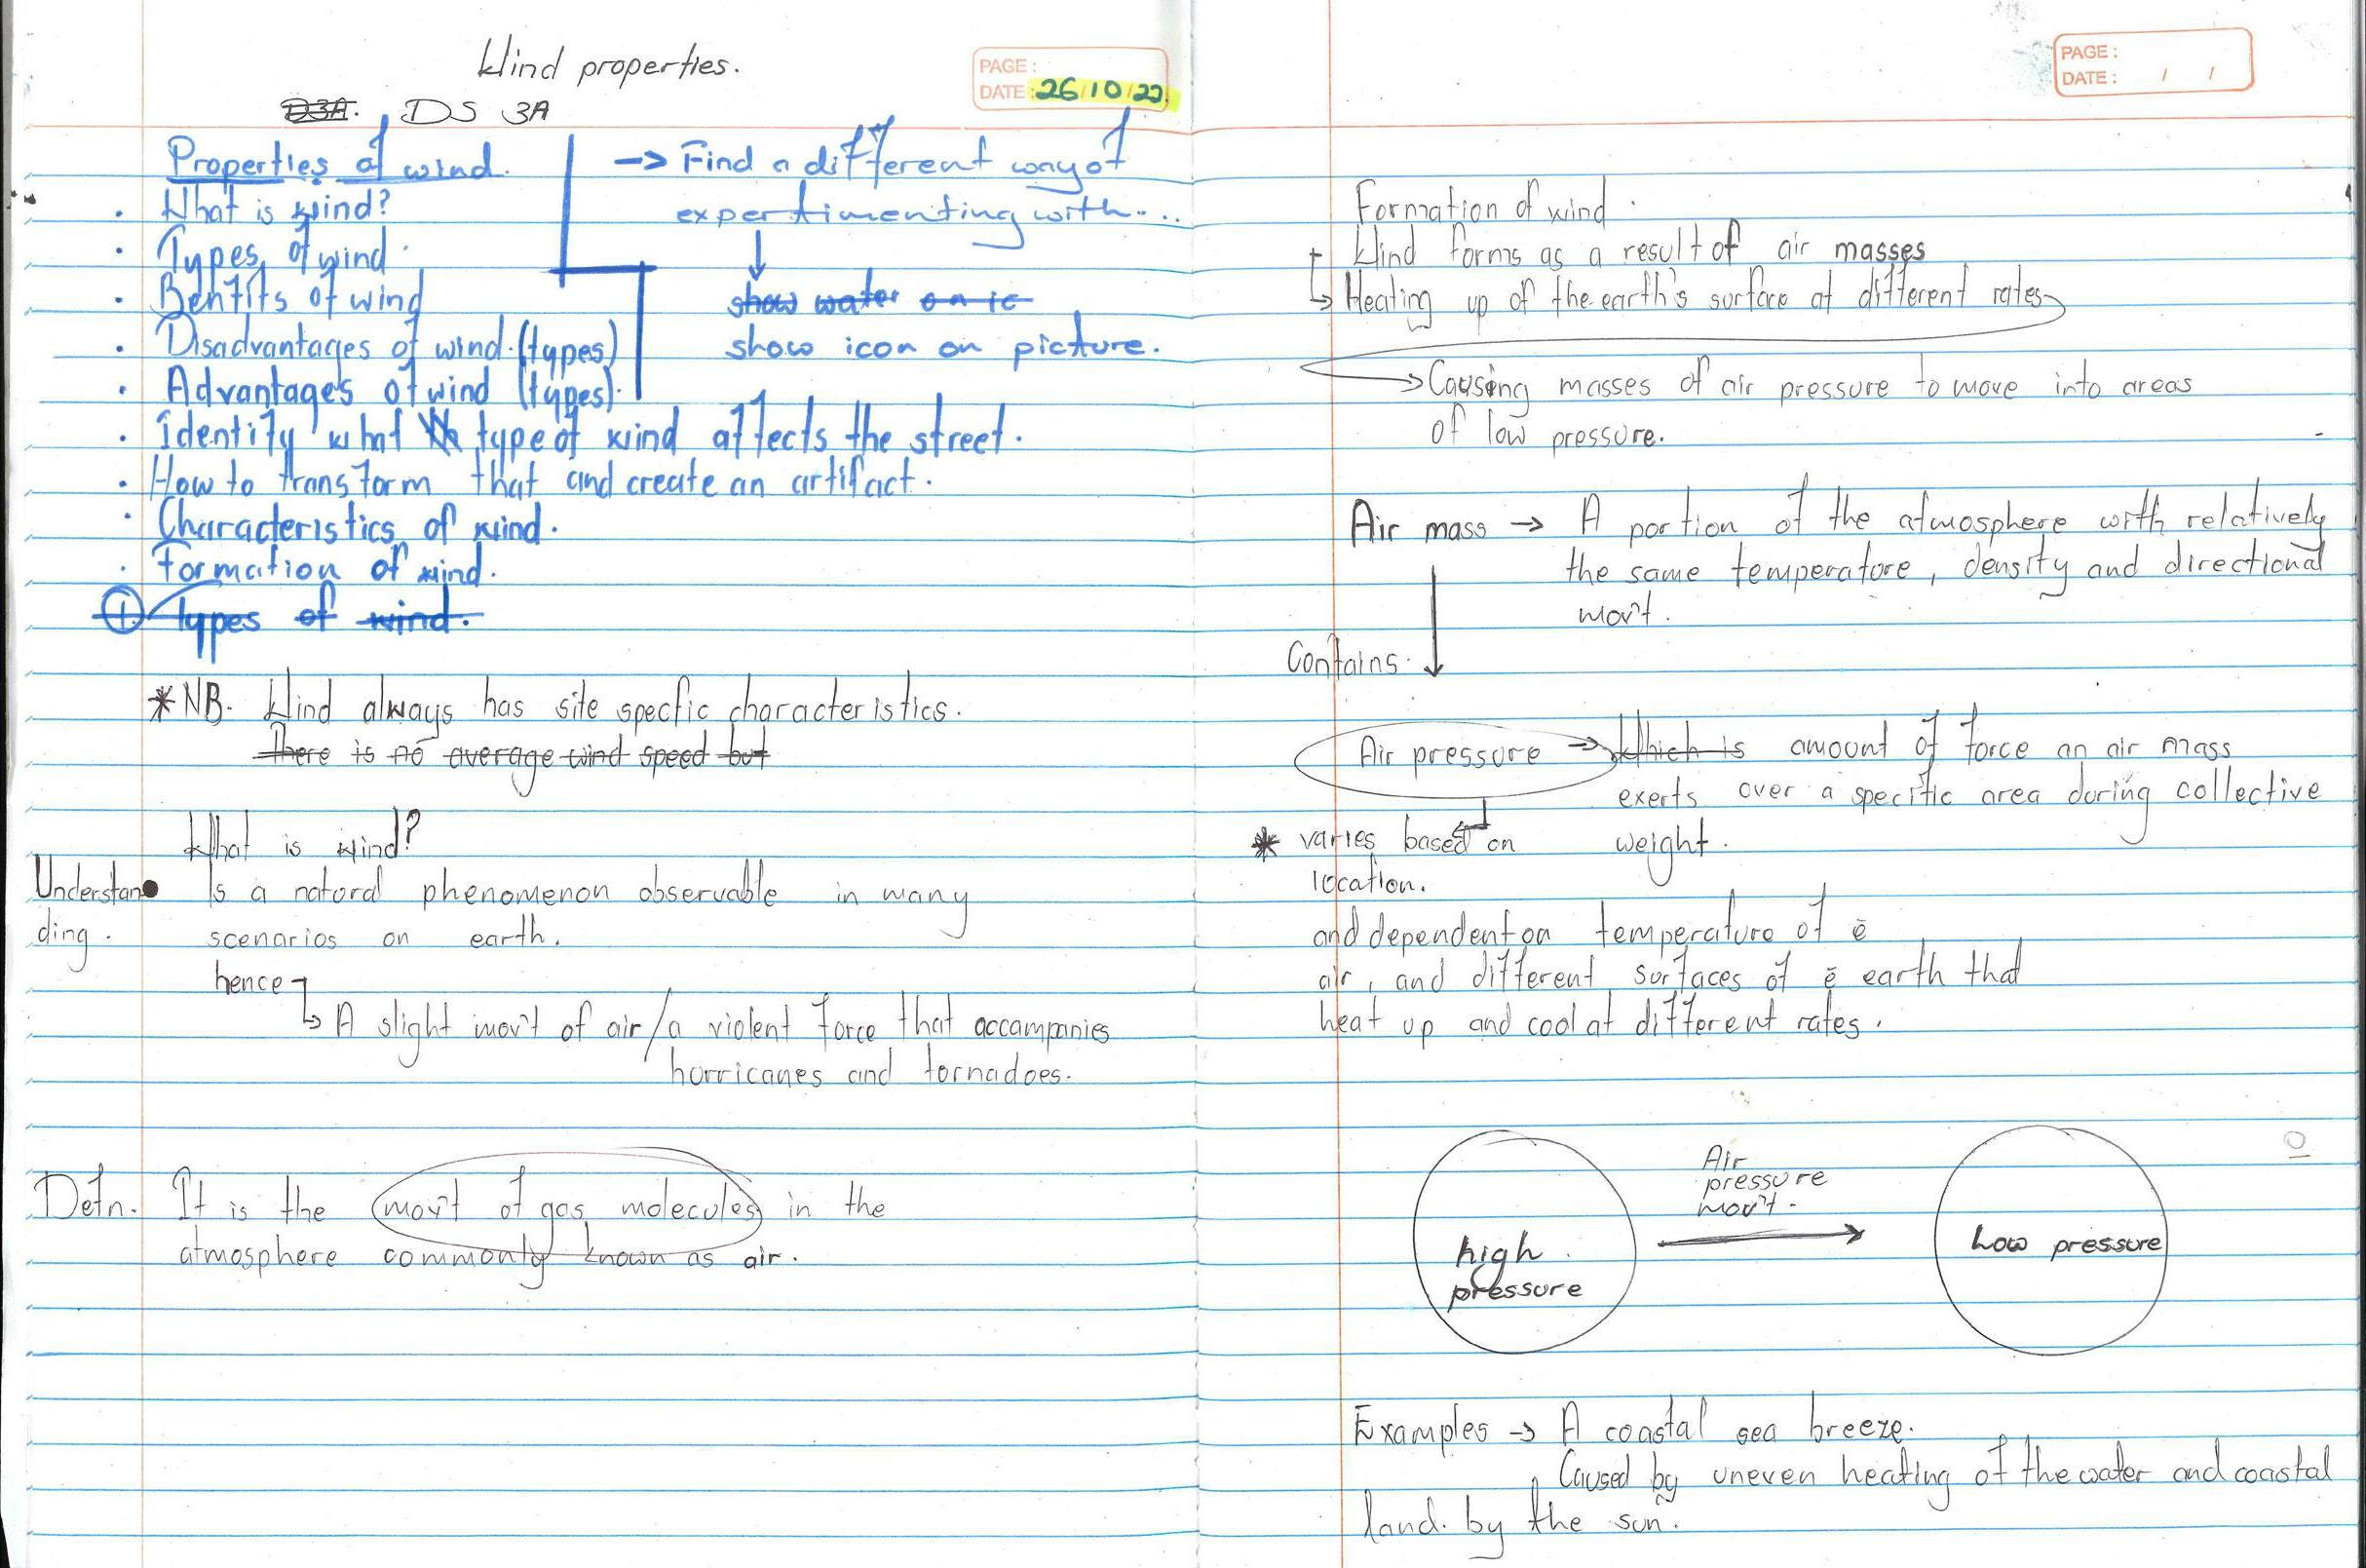 Wind properties.
PAGE :
DATE : 26/10/22
D3A. DS 3A
Properties of wind.
· What is wind?
· Types of wind.
· Bentits of wind
· Disadvantages of wind. (types)
· Advantages of wind (types).
→ Find a different way of
expertimenting with...
show water on ic
show icon on picture.
· Identify what type of wind affects the street.
· How to transform that and create an artifact.
· Characteristics of wind.
· Formation of wind.
① Types of wind.
*NB. Wind always has site specfic characteristics.
There is no average wind speed but
What is wind?
Understan
ding.
Is a natural phenomenon observable in many
scenarios on earth.
hence
↳ A slight mov't of air/a violent force that accompanies
hurricanes and tornadoes.
Defn. It is the mov't of gas molecules in the
atmosphere commonly known as air.
PAGE :
DATE : / /
Formation of wind.
Wind forms as a result of air masses
↳ Heating up of the earth's surface at different rates
→ Causing masses of air pressure to move into areas
of low pressure.
Air mass → A portion of the atmosphere with relatively
the same temperature, density and directional
mov't.
Contains.
Air pressure → Which is amount of force an air mass
exerts over a specific area during collective
weight.
* varies based on
location.
and dependent on temperature of ē
air, and different surfaces of ē earth that
heat up and cool at different rates.
Air
pressure
mov't.
high
pressure
Low pressure
Examples → A coastal sea breeze.
Caused by uneven heating of the water and coastal
land. by the sun.